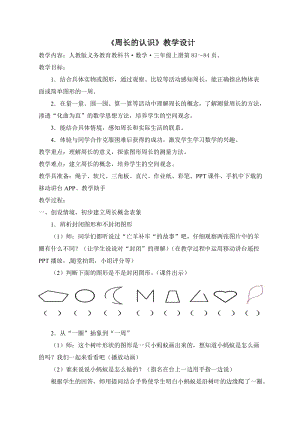 《周长的认识》教学设计
教学内容：人教版义务教育教科书·数学·三年级上册第83～84页。
教学目标：
1、结合具体实物或图形，通过观察、比较等活动感知周长，能正确指出物体表
面或简单图形的一周。
2、在量一量、围一围、算一算等活动中理解周长的概念，了解测量周长的方法，
渗透“化曲为直”的数学思想方法，培养学生的空间观念。
3、能结合具体情境，感知周长和实际生活的联系。
4、体验与同学合作克服困难后获得的成功，激发学生学习数学的兴趣。
教学重点：理解周长的意义，探索图形周长的测量方法。
教学难点：建立周长的概念，培养学生的空间观念。
教学具准备：绳子、软尺、三角板、直尺、作业纸、彩笔、PPT课件、手机中下载的
移动讲台APP、教学助手
教学过程：
一、创设情境，初步建立周长概念表象
1、辨析封闭图形和不封闭图形
（1）师：同学们都听说过“亡羊补牢”的故事吧，仔细观察两张图片中的羊
圈有什么不同？（让学生说说对“封闭”的理解）（在教学过程中运用移动讲台遥控
PPT播放，随堂拍照，全班评价交流）
（2）判断下面的图形是不是封闭图形。（课件出示）
（ ） （ ） （ ） （ ） （ ） （ ） （ ） （ ）
2、从“一圈”抽象到“一周”
（1）师：这个树叶形状的图形是一只小蚂蚁画出来的，想知道小蚂蚁是怎么画
的吗？我们一起来看看吧（播放动画）
（2）谁来说说小蚂蚁是怎么做的？（指名在台上一边说一边用手指）
根据学生的回答，师用提问结合手势使学生明白小蚂蚁是沿树叶的边缘爬了一圈，